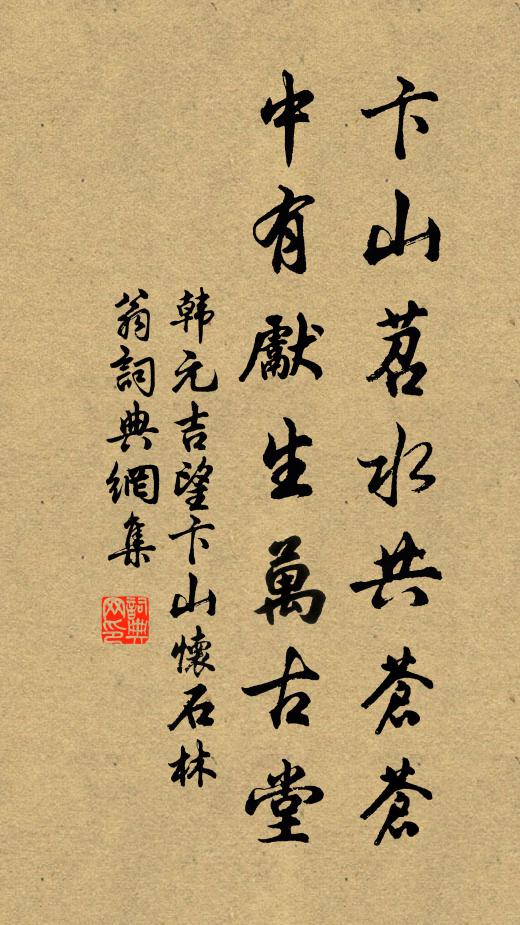 卞山苕水共蒼蒼
中有獻生萬古堂
韩元吉望卞山懷石林
翁詞典網集
詞典网印